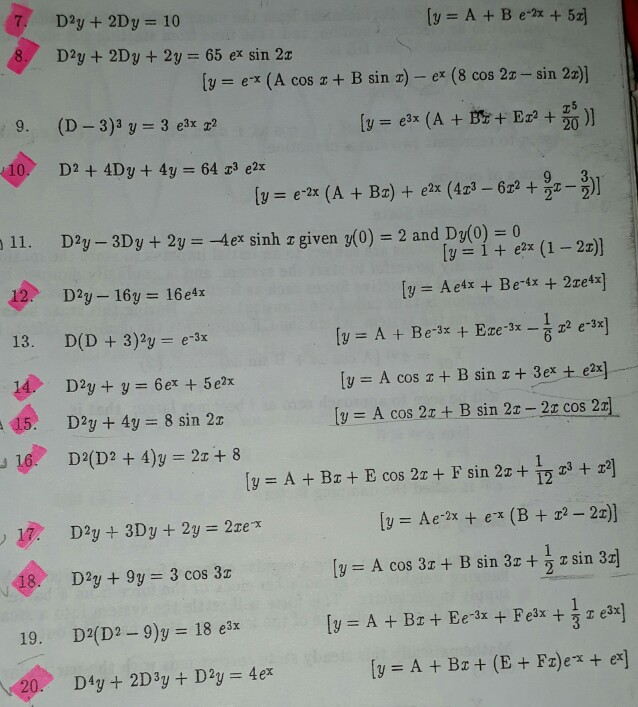 7. D²y + 2Dy = 10 [y = A + B e⁻²ˣ + 5x]
8. D²y + 2Dy + 2y = 65 eˣ sin 2x
[y = e⁻ˣ (A cos x + B sin x) − eˣ (8 cos 2x − sin 2x)]
9. (D − 3)³ y = 3 e³ˣ x² [y = e³ˣ (A + Bx + Ex² + x⁵/20 )]
10. D² + 4Dy + 4y = 64 x³ e²ˣ
[y = e⁻²ˣ (A + Bx) + e²ˣ (4x³ − 6x² + 9/2 x − 3/2)]
11. D²y − 3Dy + 2y = −4eˣ sinh x given y(0) = 2 and Dy(0) = 0
[y = 1 + e²ˣ (1 − 2x)]
12. D²y − 16y = 16e⁴ˣ [y = Ae⁴ˣ + Be⁻⁴ˣ + 2xe⁴ˣ]
13. D(D + 3)²y = e⁻³ˣ [y = A + Be⁻³ˣ + Exe⁻³ˣ − 1/6 x² e⁻³ˣ]
14. D²y + y = 6eˣ + 5e²ˣ [y = A cos x + B sin x + 3eˣ + e²ˣ]
15. D²y + 4y = 8 sin 2x [y = A cos 2x + B sin 2x − 2x cos 2x]
16. D²(D² + 4)y = 2x + 8
[y = A + Bx + E cos 2x + F sin 2x + 1/12 x³ + x²]
17. D²y + 3Dy + 2y = 2xe⁻ˣ [y = Ae⁻²ˣ + e⁻ˣ (B + x² − 2x)]
18. D²y + 9y = 3 cos 3x [y = A cos 3x + B sin 3x + 1/2 x sin 3x]
19. D²(D² − 9)y = 18 e³ˣ [y = A + Bx + Ee⁻³ˣ + Fe³ˣ + 1/3 x e³ˣ]
20. D⁴y + 2D³y + D²y = 4eˣ [y = A + Bx + (E + Fx)e⁻ˣ + eˣ]